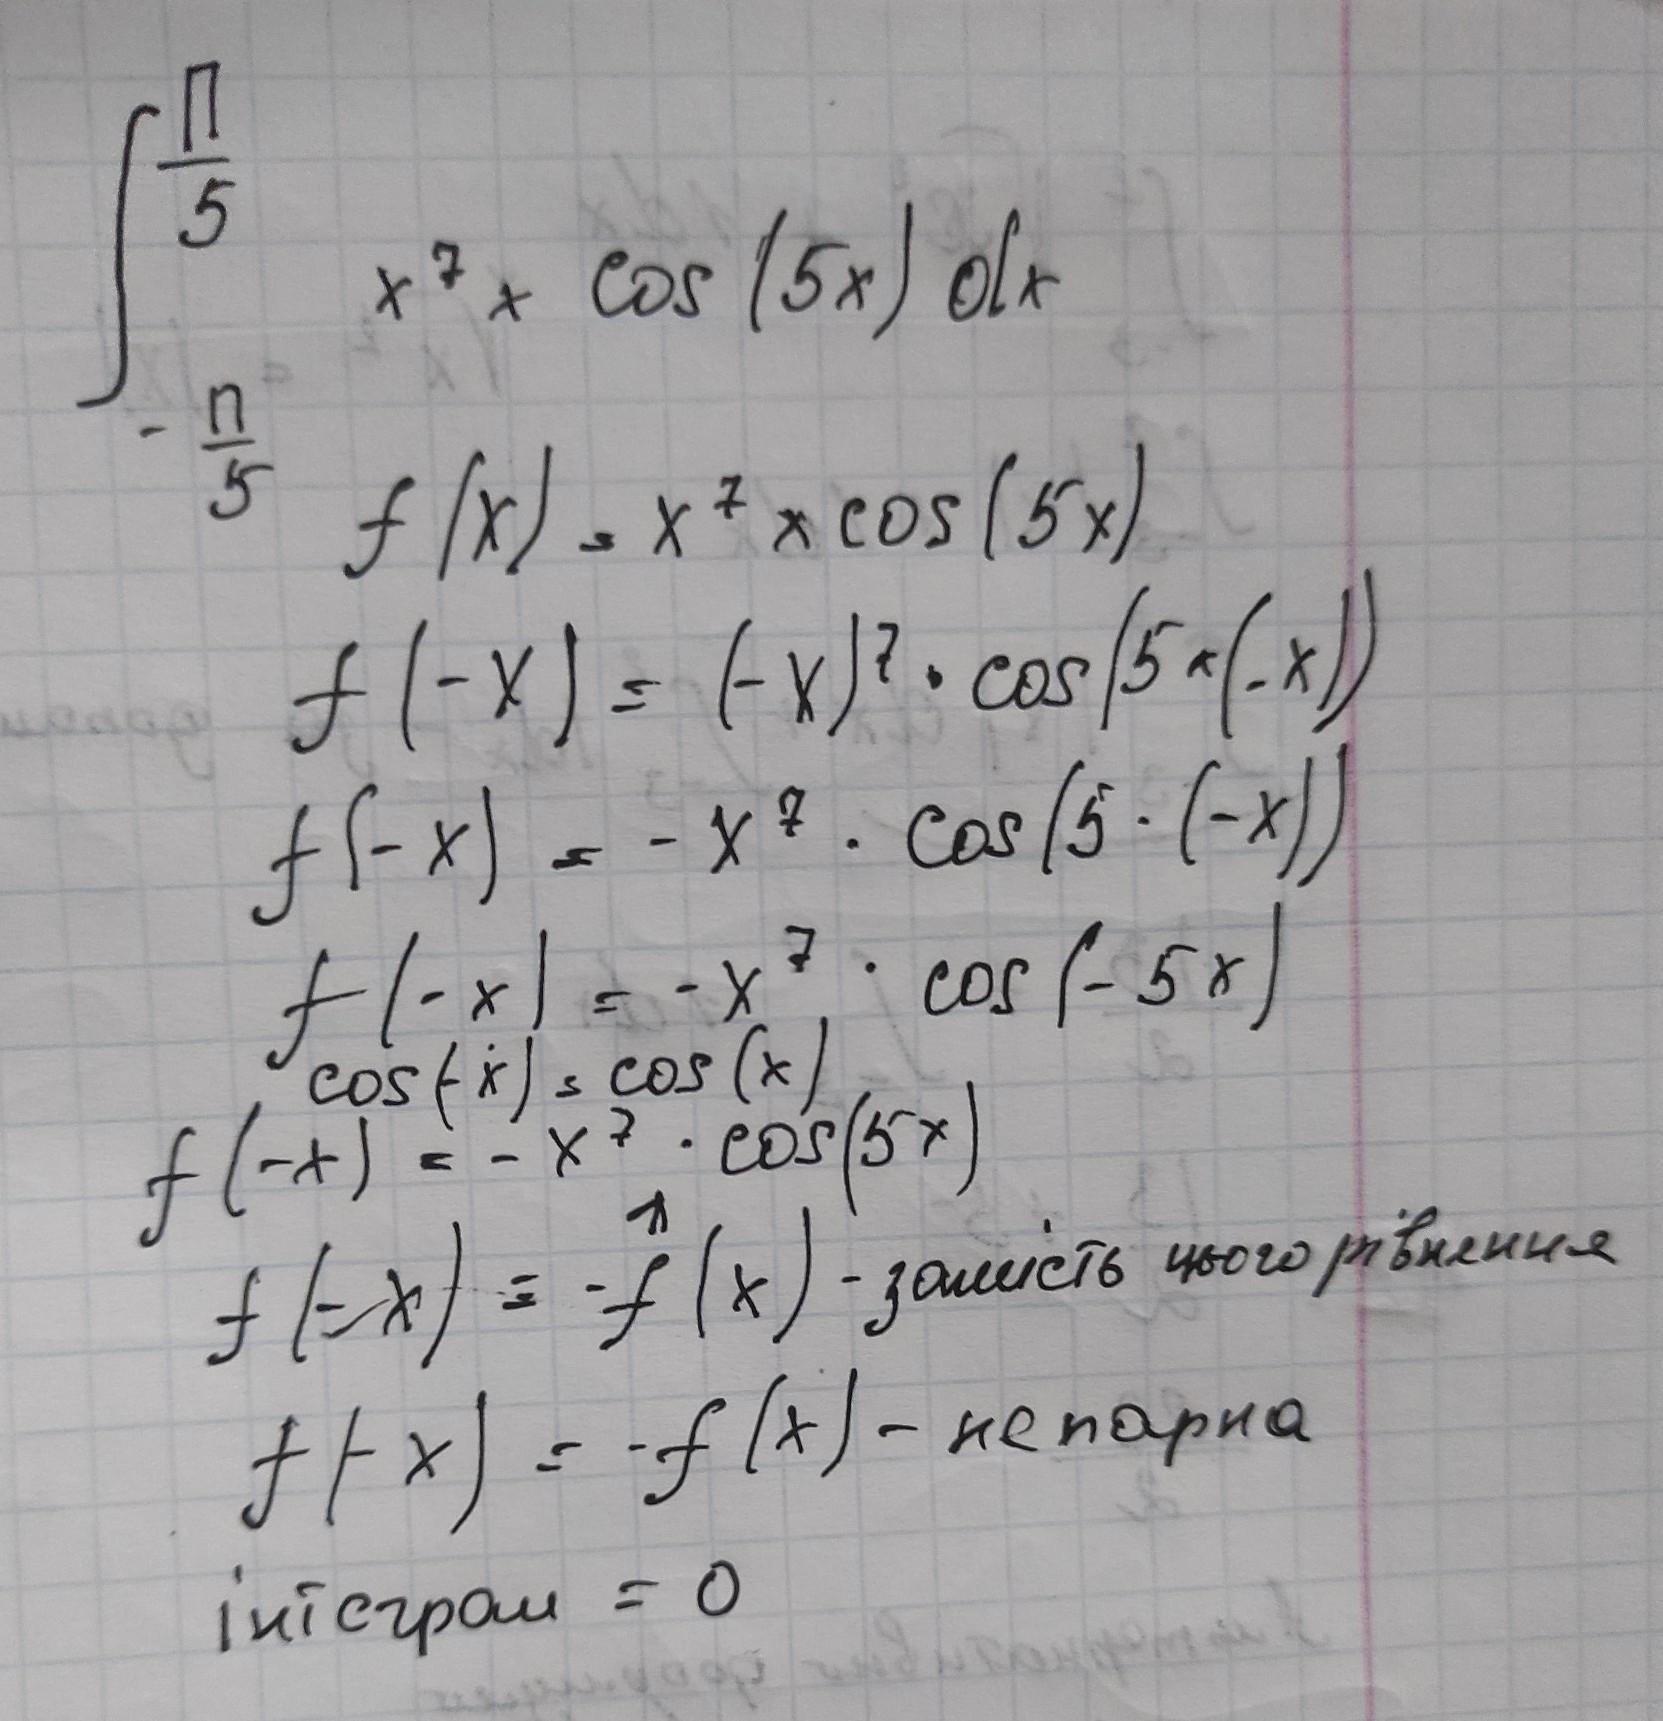 ∫_{-π/5}^{π/5} x⁷ × cos (5x) dx
f(x) = x⁷ × cos(5x)
f(-x) = (-x)⁷ · cos(5 × (-x))
f(-x) = -x⁷ · cos(5 · (-x))
f(-x) = -x⁷ · cos(-5x)
cos(-x) = cos(x)
f(-x) = -x⁷ · cos(5x)
f(-x) = -f(x) - замість цього рівняння
f(-x) = -f(x) - непарна
інтеграл = 0